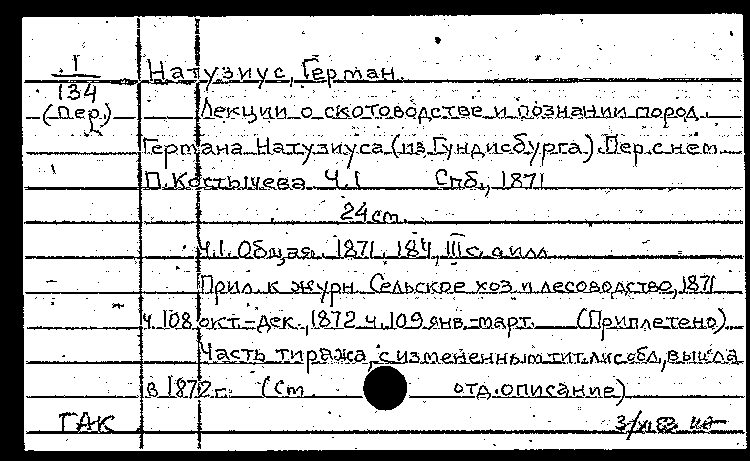 I
134
(Пер.)
Натузиус, Герман.
Лекции о скотоводстве и познании пород
Германа Натузиуса (из Гундисбурга). Пер. с нем
П. Костычева. Ч.I Спб., 1871
24 см.
Ч.I. Общая. 1871, 184, III с. с илл
Прил. к журн. Сельское хоз и лесоводство, 1871
ч. 108 окт.-дек., 1872 ч. 109 янв.-март. (Приплетено)
Часть тиража, с измененным тит. лис. обл, вышла
в 1872 г. (См. отд. описание)
ГАК